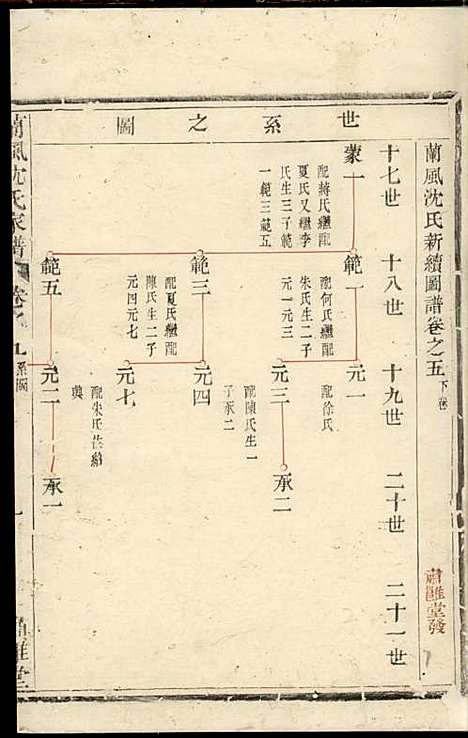 世系之圖
蘭風沈氏新續圖譜卷之五 下卷
肅雝堂發
十七世
十八世
十九世
二十世
二十一世
蒙一
配蔣氏繼配
夏氏又繼李
氏生三子範
一範三範五
範一
配何氏繼配
朱氏生二子
元一元三
範三
配夏氏繼配
陳氏生二子
元四元七
範五
元一
配徐氏
元三
配陳氏生一
子承二
元四
元七
元二
配朱氏
承二
承一
蘭風沈氏家譜
系圖